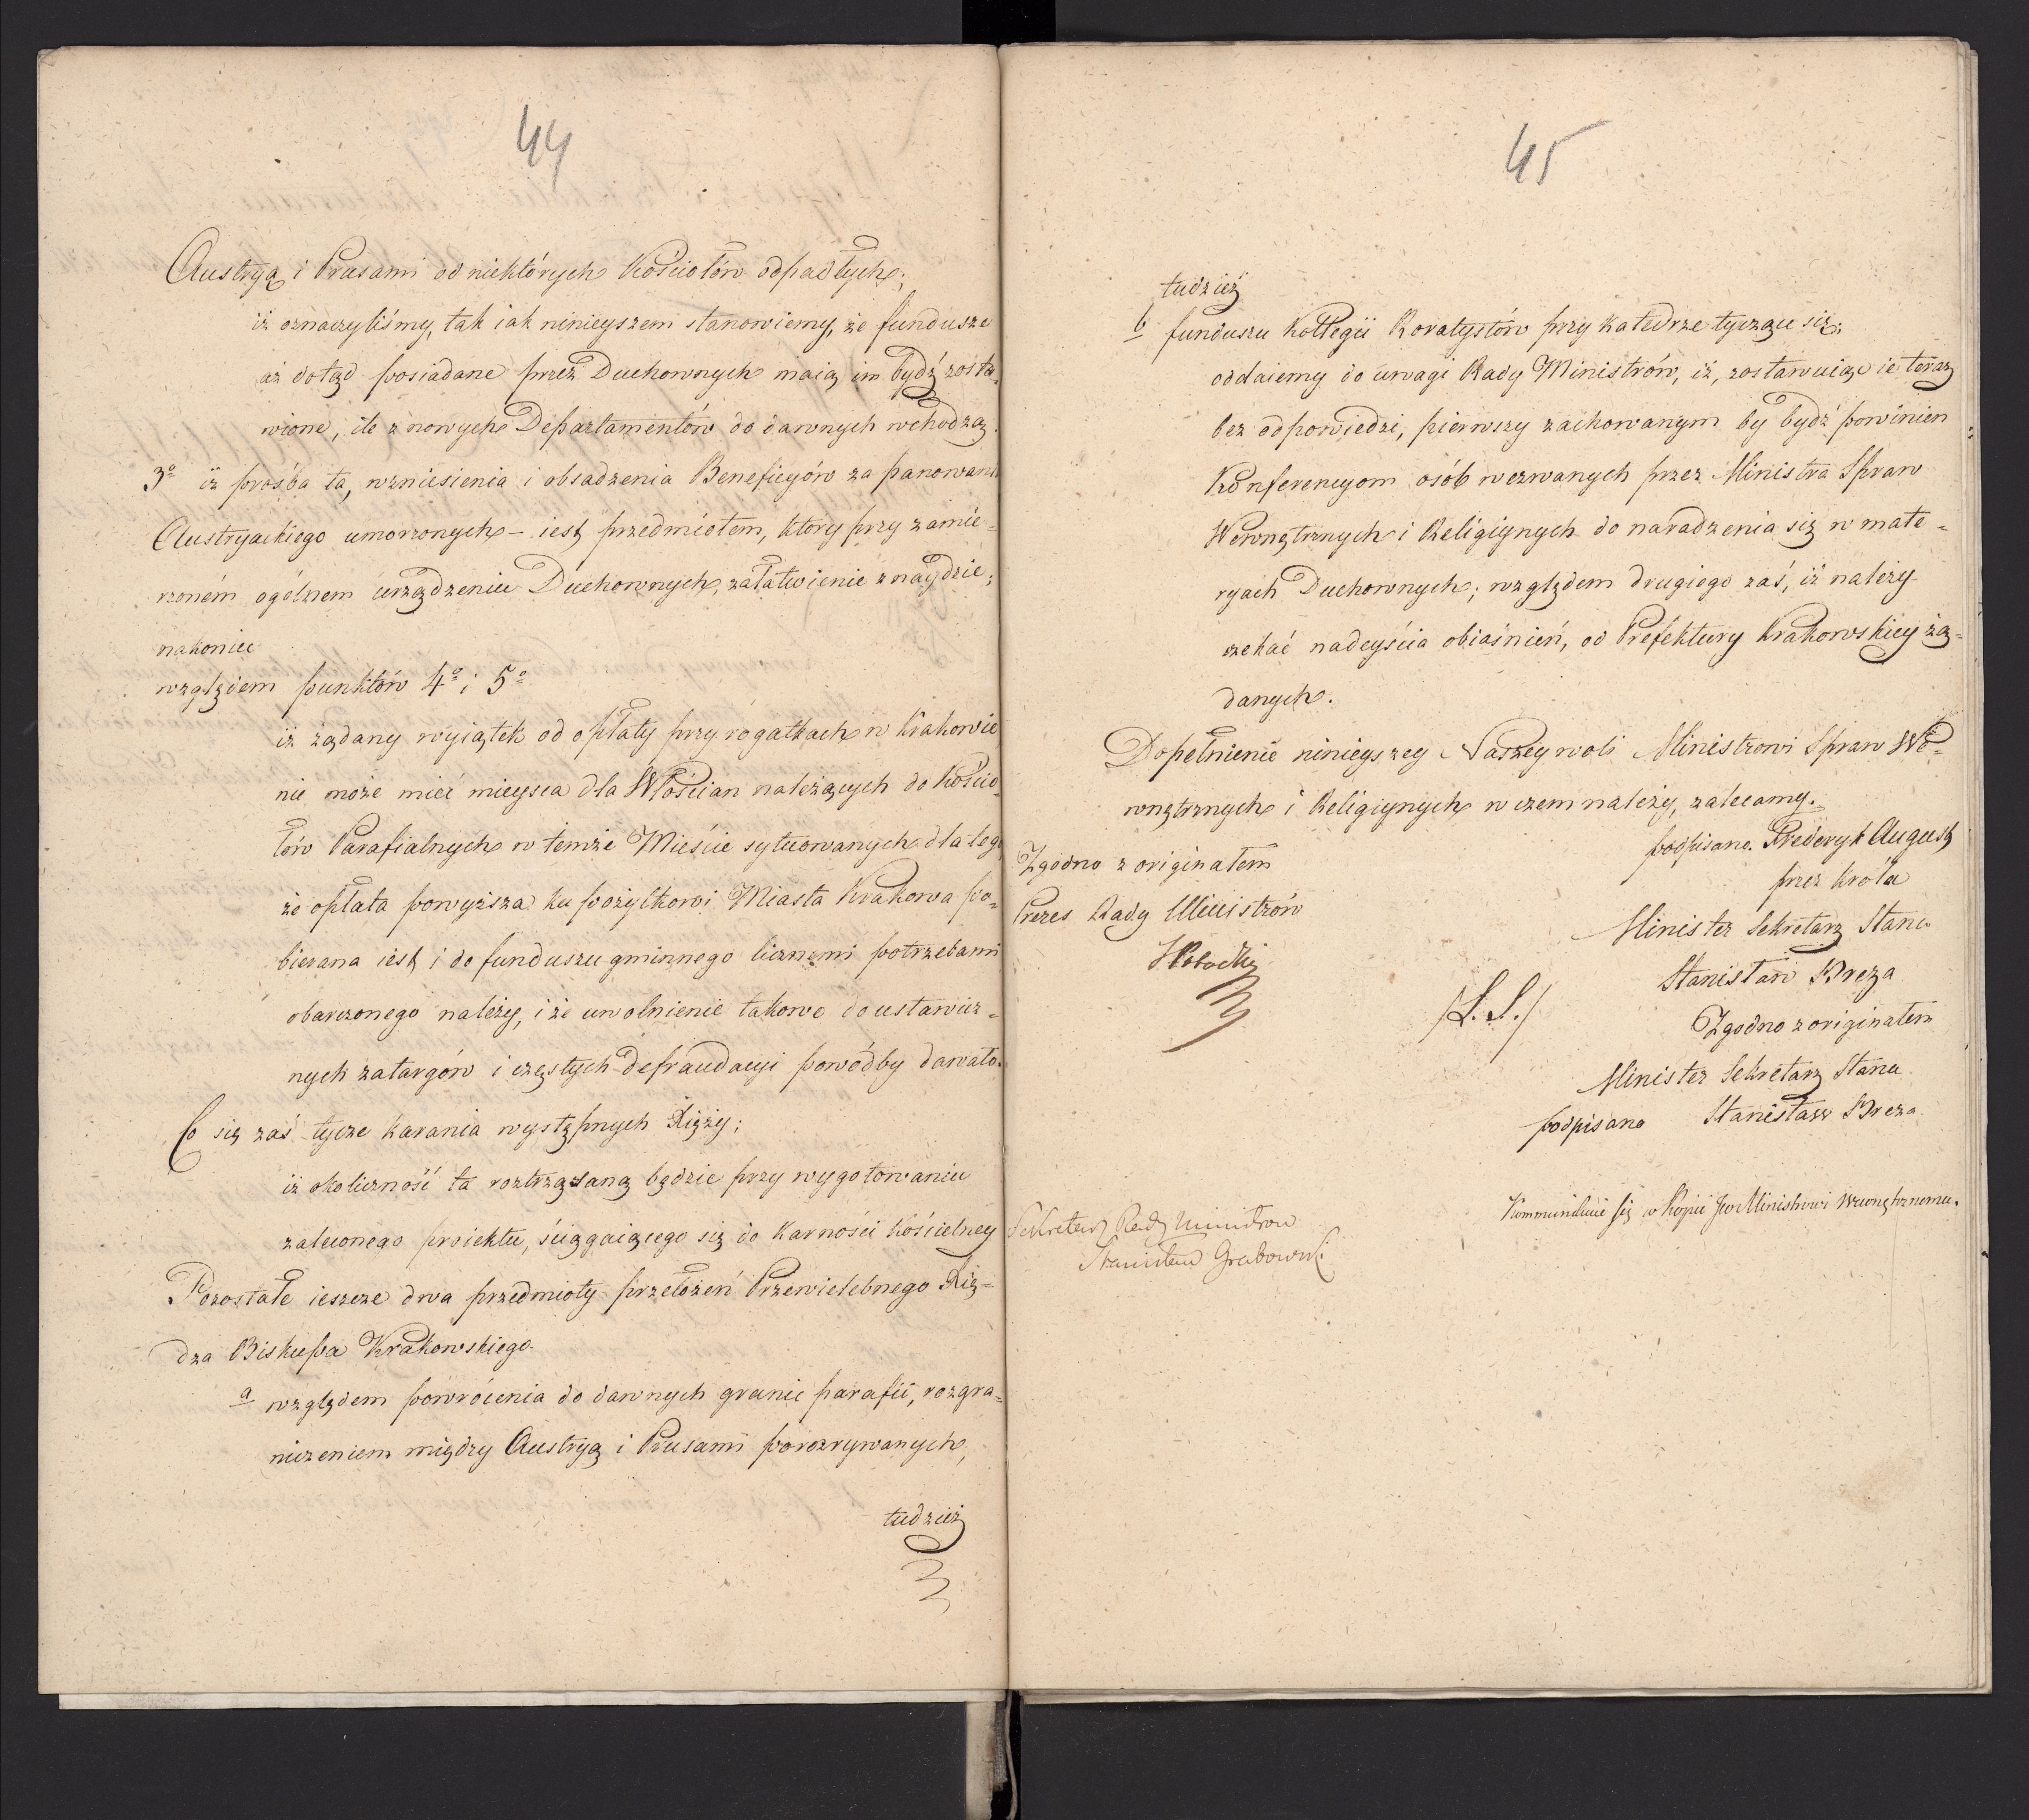 44
Austryą i Prusami od niektórych Kościołów odpadłych;
iż oznaczyliśmy, tak iak ninieyszem stanowiemy, że fundusze
aż dotąd posiadane przez Duchownych maią im bydź zosta-
wione, ile z nowych Departamentów do dawnych wchodzą.
3o iż prośba ta, wzniesienia i obsadzenia Beneficyów za panowani
Austryackiego umorzonych – iest przedmiotem, który przy zamie-
rzoném ogólnem urządzeniu Duchownych, załatwienie znaydzie;
nakoniec
względem punktów 4o i 5o
iż żądany wyiątek od opłaty przy rogatkach w Krakowie
nie może mieć mieysca dla Włościan należących do Kościo-
łów Parafialnych w temże Mieście sytuowanych dla teg
że opłata powyższa ku pożytkowi Miasta Krakowa po-
bierana iest i do funduszu gminnego licznemi potrzebami
obarczonego należy, i że uwolnienie takowe do ustawicz-
nych zatargów i częstych defraudacyi powódby dawało.
Co się zaś tycze karania występnych Xięży;
iż okoliczność ta roztrząsaną będzie przy wygotowaniu
zaleconego proiektu, ściągaiącego się do Karności Kościelney
Pozostałe ieszcze dwa przedmioty przełożeń Przewielebnego Xię-
dza Biskupa Krakowskiego.
a względem powrócenia do dawnych granic parafii, rozgra-
niczeniem między Austryą i Prusami porozrywanych,
tudzież
45
tudzież
b funduszu Kollegii Roratystów przy Katedrze tyczące się;
oddaiemy do uwagi Rady Ministrów, iż, zostawuiąc ie teraz
bez odpowiedzi, pierwszy zachowanym by bydź powinien
Konferencyom osób wezwanych przez Ministra Spraw
Wewnętrznych i Religiynych do naradzenia się w mate-
ryach Duchownych; względem drugiego zaś, iż należy
czekać nadeyścia obiaśnień, od Prefektury Krakowskiey żą-
danych.
Dopełnienie ninieyszey Naszey woli Ministrowi Spraw We-
wnętrznych i Religiynych w czem należy, zalecamy.
podpisano. Frederyk August
przez Króla
Minister Sekretarz Stanu
Stanisław Breza
Zgodno z originałem
Prezes Rady Ministrów
/L.S./
Zgodno z originałem
Minister Sekretarz Stanu
podpisano Stanisław Breza
Kommunikuie się w Kopii Jwu Ministrowi Wewnętrznemu.
Sekretarz Rady Ministrów
Stanisław Grabowski